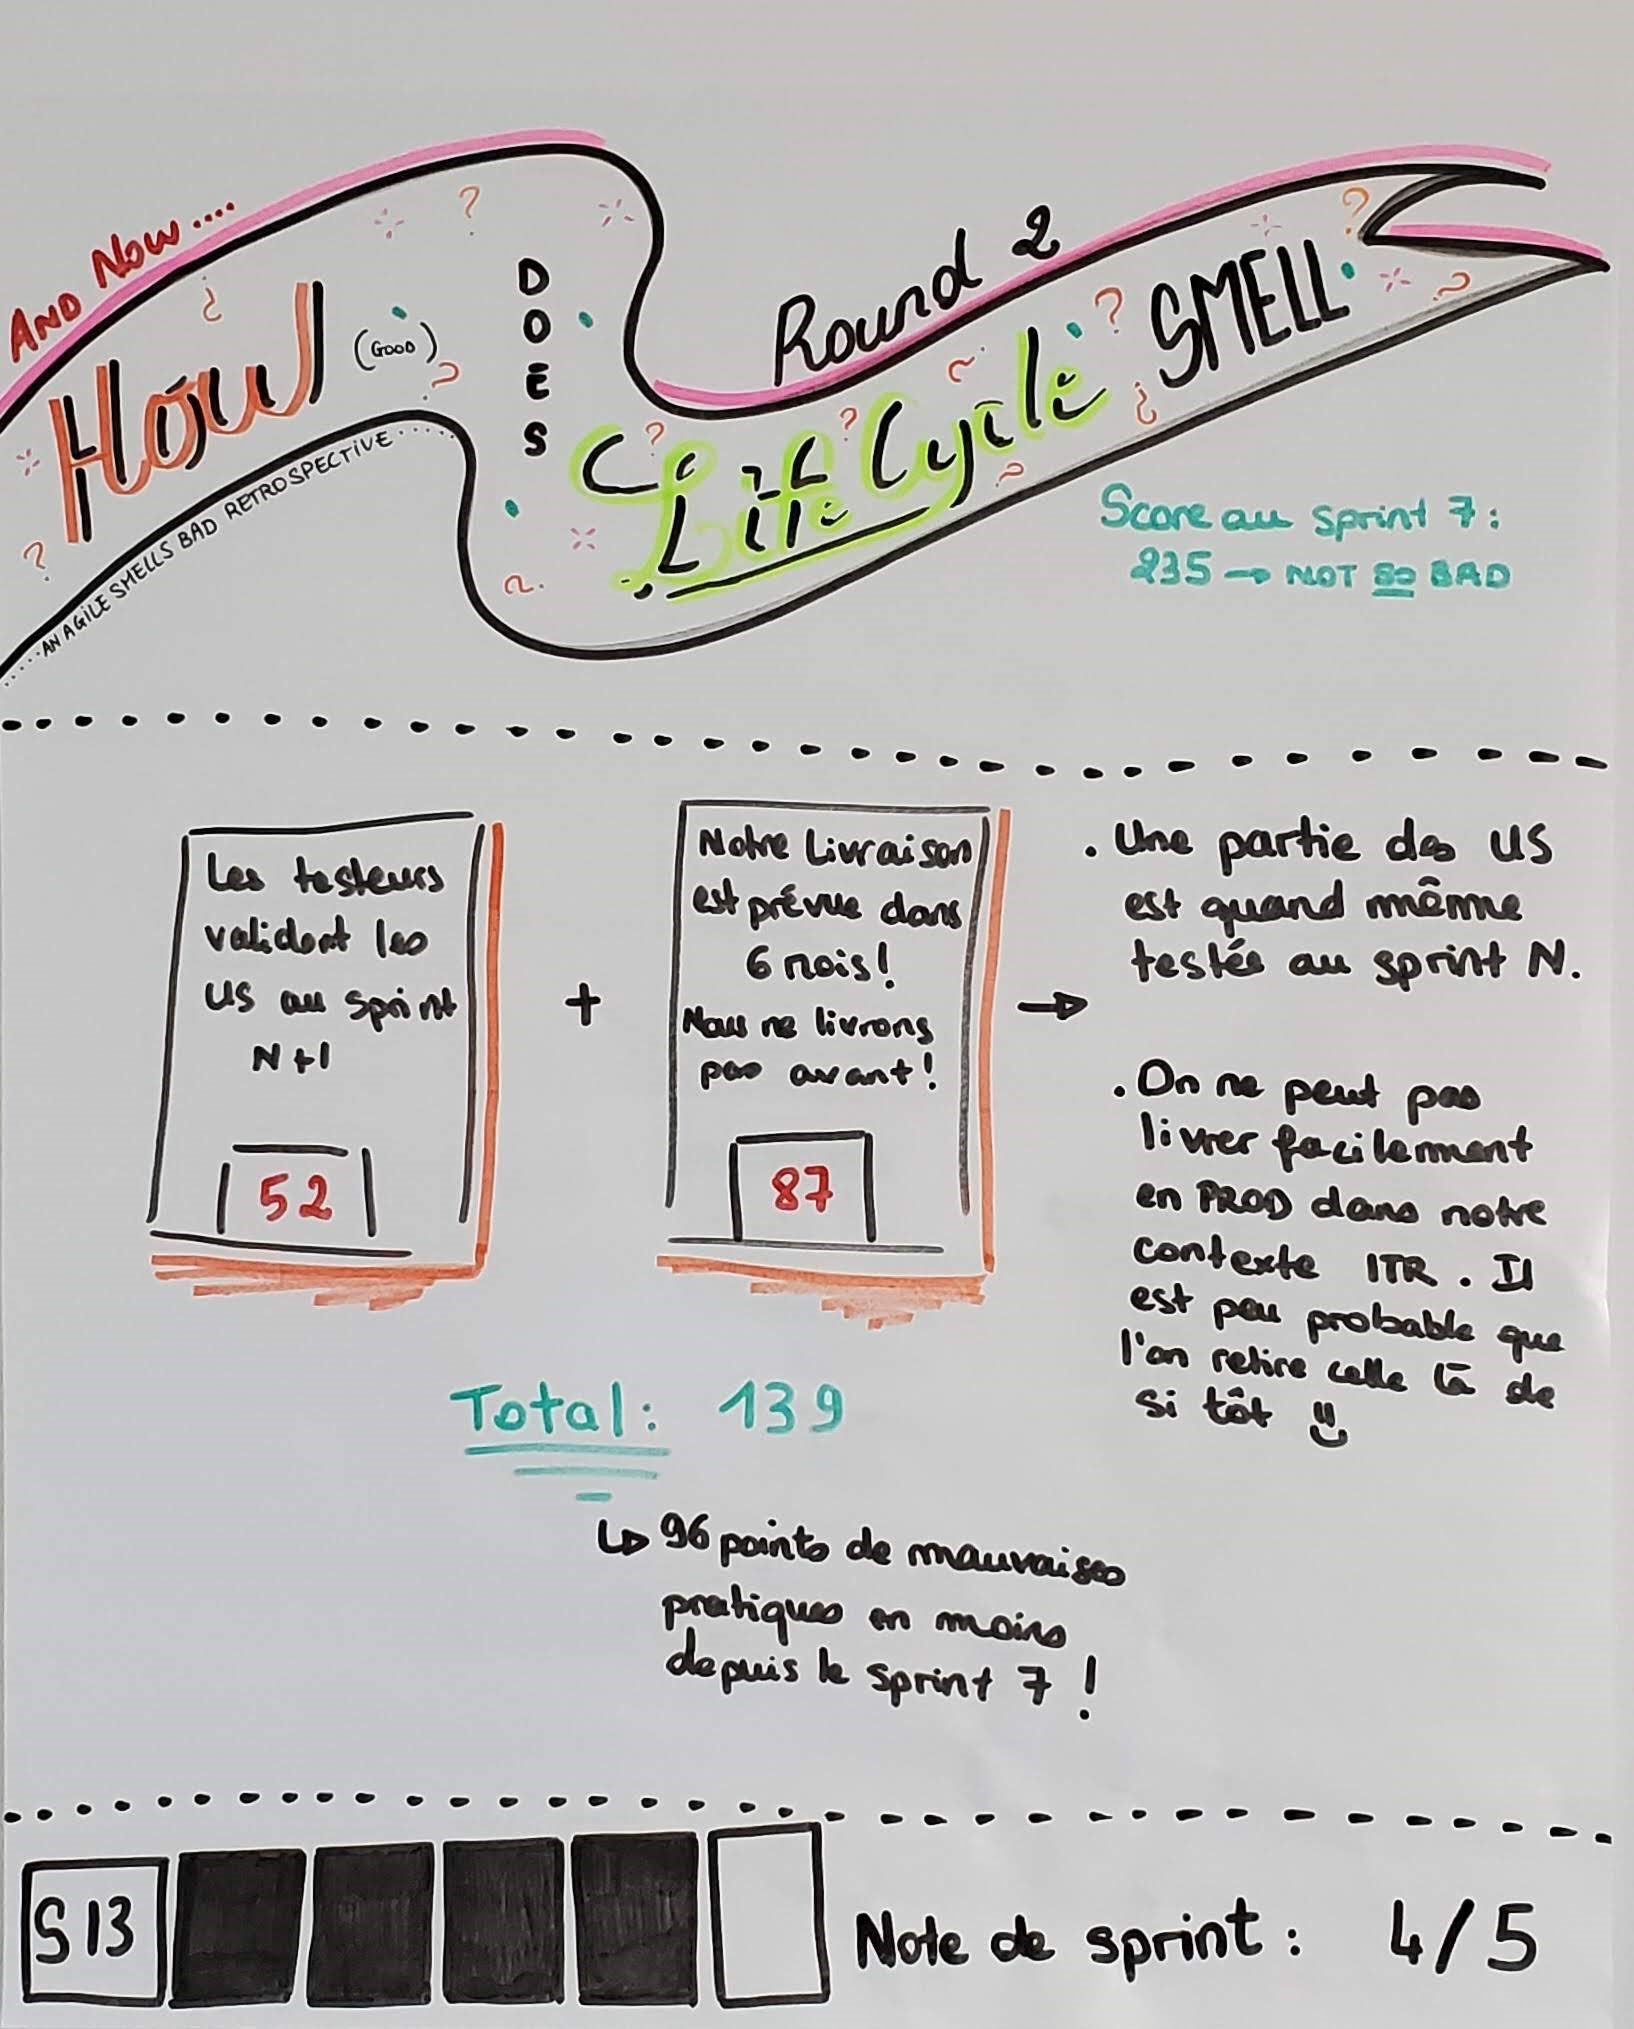 AND NOW....
HOW (GOOD)
DOES
Life Cycle
SMELL
Round 2
....AN AGILE SMELLS BAD RETROSPECTIVE......
Score au sprint 7 :
235 → NOT SO BAD
Les testeurs
valident les
US au sprint
N+1
52
+
Notre Livraison
est prévue dans
6 mois!
Nous ne livrons
pas avant!
87
→
. Une partie des US
est quand même
testés au sprint N.
. On ne peut pas
livrer facilement
en PROD dans notre
contexte ITR. Il
est peu probable que
l'on retire celle là de
si tôt
Total : 139
↳ 96 points de mauvaises
pratiques en moins
depuis le sprint 7 !
S13
Note de sprint : 4/5